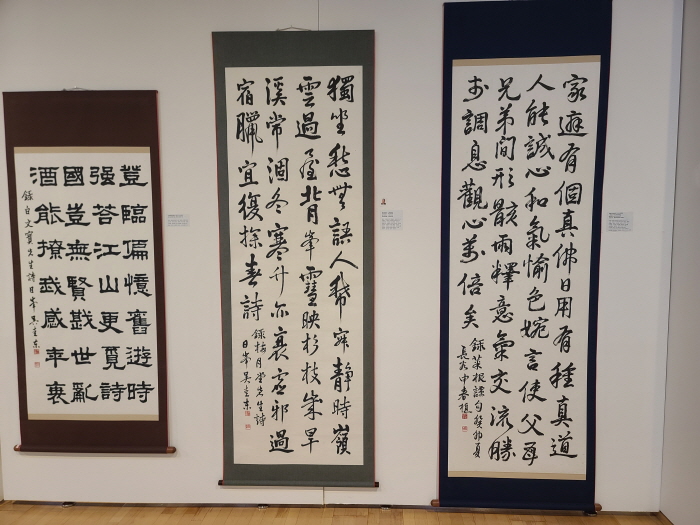 家庭有個真佛日用有種真道
人能誠心和氣愉色婉言使父母
兄弟間形骸兩釋意氣交流勝
於調息觀心萬倍矣
錄菜根譚句癸卯夏
獨坐愁無語人稀寂靜時嶺
雲過屋背峯雪映杉枝歲旱
溪常涸冬寒竹亦衰虛邪過
宿臘宜復探春詩
錄梅月堂先生詩
日峯吳圭東
登臨偏憶舊遊時
强答江山更覓詩
國豈無賢戡世亂
酒能撩我感年衰
錄白文寶先生詩日峯吳圭東